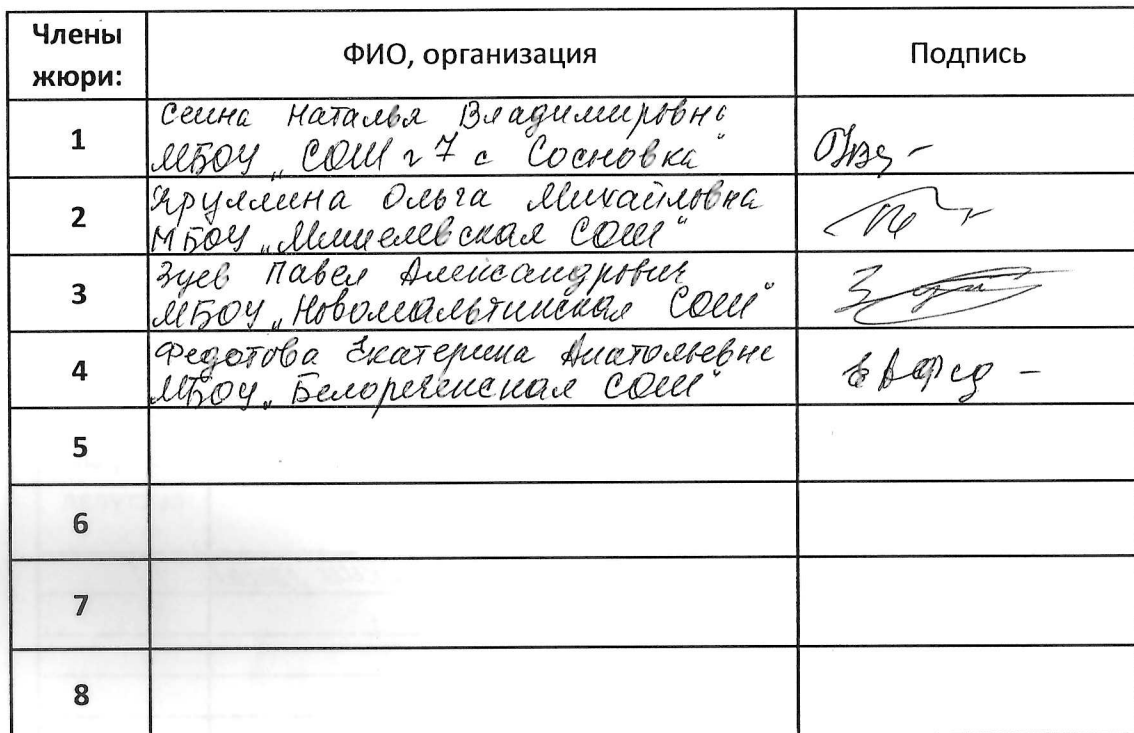 Члены жюри: ФИО, организация Подпись
1 Сеина Наталья Владимировна
МБОУ „СОШ №7 с Сосновка"
2 Яруллина Ольга Михайловна
МБОУ „Мишелевская СОШ"
3 Зуев Павел Александрович
МБОУ „Новомальтинская СОШ"
4 Федотова Екатерина Анатольевна
МБОУ „Белореченская СОШ"
5
6
7
8